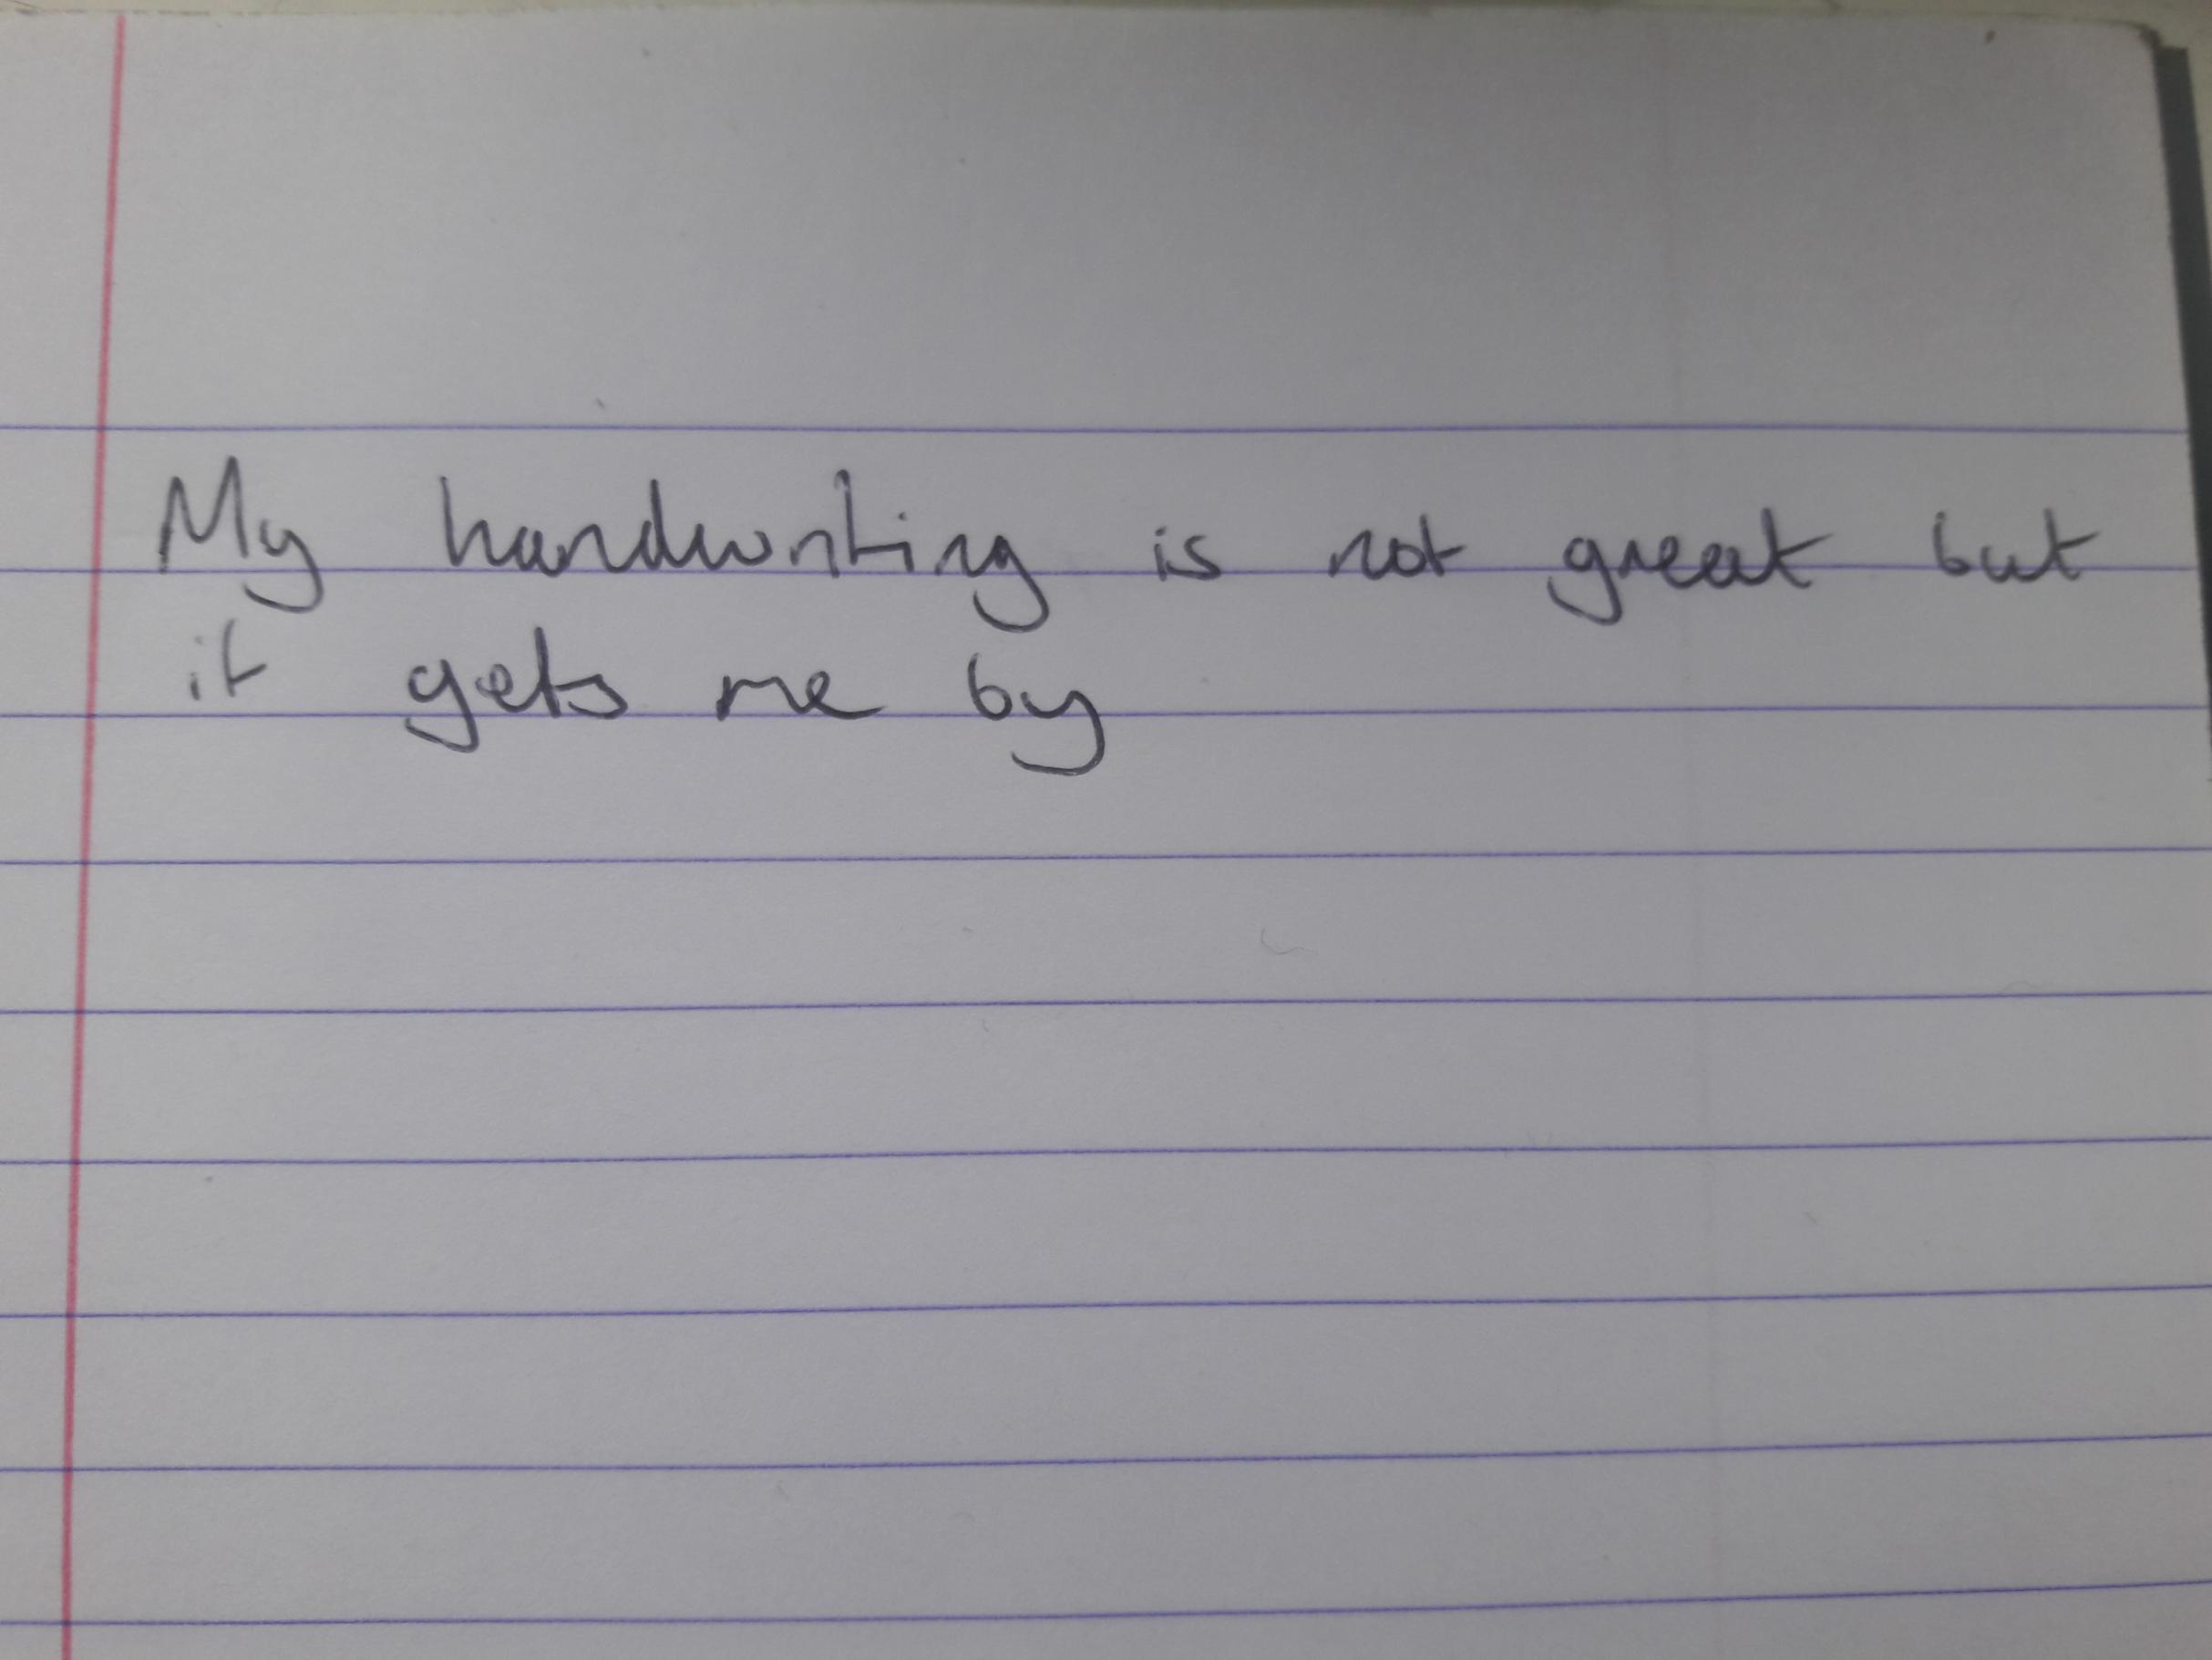 My handwriting is not great but
it gets me by